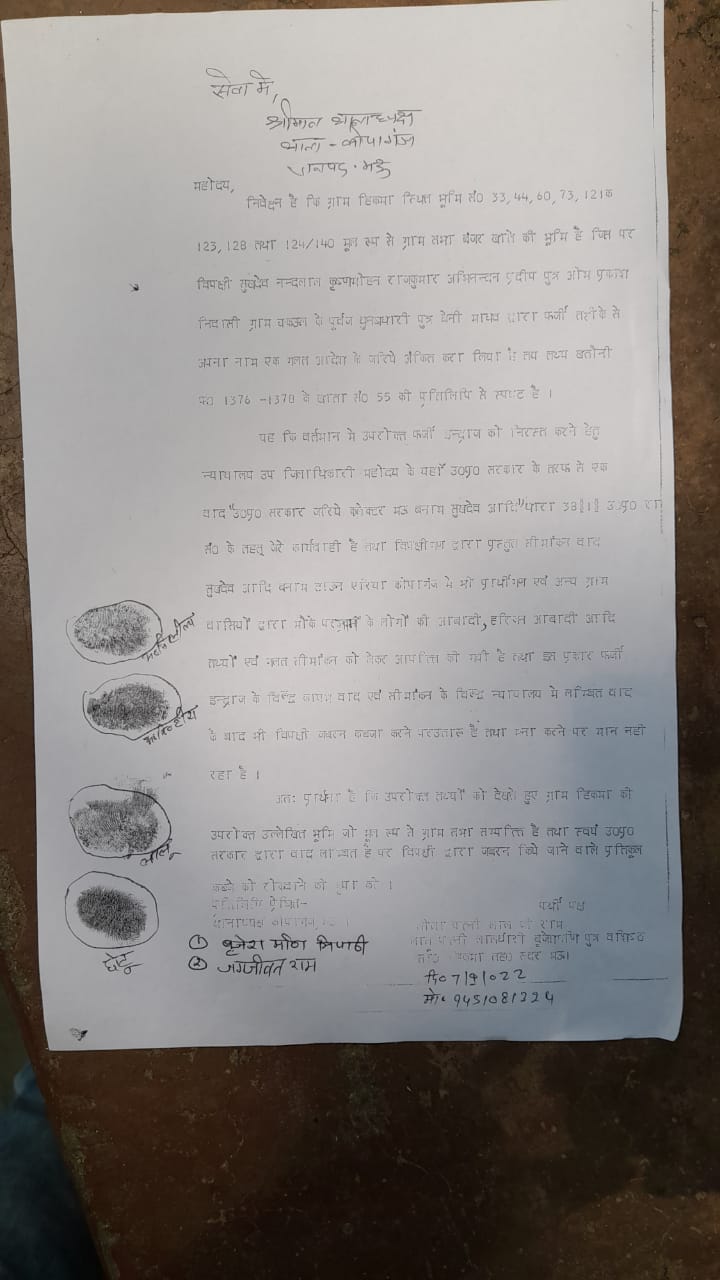 सेवा मे,
श्रीमान थानाध्यक्ष
थाना - कोपागंज
जनपद - मऊ
महोदय,
निवेदन है कि ग्राम डिकमा स्थित भूमि सं0 33, 44, 60, 73, 121क
123, 128 तथा 124/140 मूल रूप से ग्राम सभा बंजर खाते की भूमि है जिस पर
विपक्षी सुखदेव नन्दलाल कृष्णमोहन राजकुमार अभिनन्दन प्रदीप पुत्र ओम प्रकाश
निवासी ग्राम के पूर्वज पुत्र बेनी माधव द्वारा फर्जी तरीके से
अपना नाम एक गलत आदेश के जरिये अंकित करा लिया है तथ्य खतौनी
1376 -1378 के खाता सं0 55 की प्रतिलिपि से स्पष्ट है ।
यह कि वर्तमान मे उपरोक्त फर्जी इन्द्राज को निरस्त करने हेतु
न्यायालय उप जिलाधिकारी महोदय के यहाँ उ0प्र0 सरकार के तरफ से एक
वाद "उ0प्र0 सरकार जरिये कलेक्टर मऊ बनाम सुखदेव आदि" धारा 38 1 उ0प्र0 रा
सं0 के तहत् जेरे कार्यवाही है तथा विपक्षीगण द्वारा प्रस्तुत सीमांकन वाद
सुखदेव आदि बनाम टाउन एरिया कोपागंज मे भी प्रार्थीगण एवं अन्य ग्राम
वासियों द्वारा मौके पर के लोगों की आबादी, हरिजन आबादी आदि
तथ्यों एवं गलत सीमांकन को लेकर आपत्ति की गयी है तथा इस प्रकार फर्जी
इन्द्राज के विरूद्ध कायम वाद एवं सीमांकन के विरूद्ध न्यायालय मे लम्बित वाद
के बाद भी विपक्षी जबरन कब्जा करने पर उतारू है तथा मना करने पर मान नही
रहा है ।
अतः प्रार्थना है कि उपरोक्त तथ्यों को देखते हुए ग्राम डिकमा की
उपरोक्त उल्लेखित भूमि जो मूल रूप से ग्राम सभा सम्पत्ति है तथा स्वयं उ0प्र0
सरकार द्वारा वाद लम्बित है पर विपक्षी द्वारा जबरन किये जाने वाले प्रतिकूल
कब्जे को रोकवाने की कृपा करें ।
प्रतिलिपि प्रेषित-
थानाध्यक्ष कोपागंज, मऊ ।
प्रार्थी गण
पत्नी राम
पत्नी बृजेशमणि पुत्र वशिष्ठ
तह0 सदर मऊ।
① बृजेश मणि त्रिपाठी
② जगजीवन राम
दि0 7/9/022
मो. 9451081224
लालू
छोटू